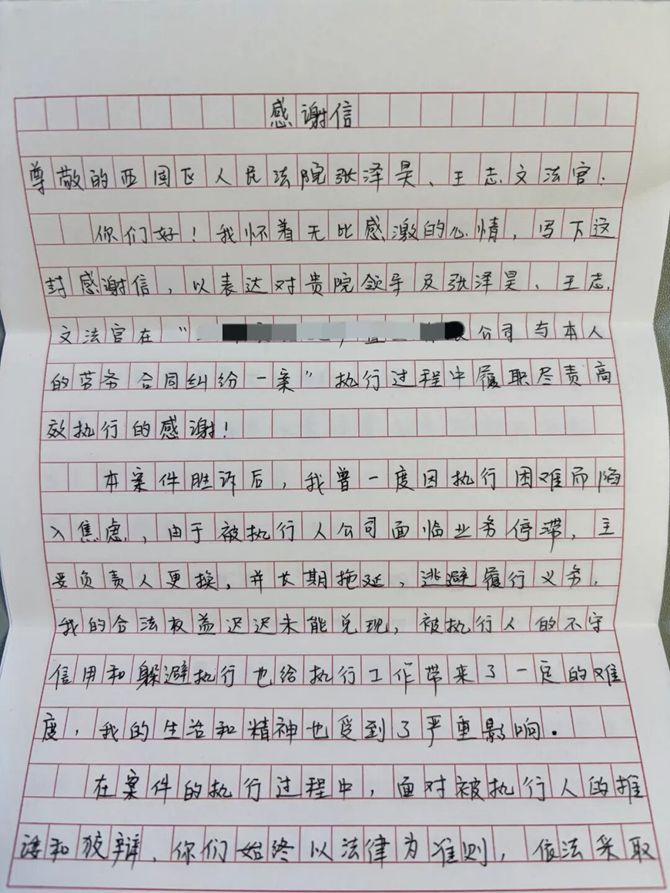 感谢信
尊敬的西固区人民法院张泽昊、王志文法官.
你们好！我怀着无比感激的心情，写下这
封感谢信，以表达对贵院领导及张泽昊、王志
文法官在“公司与本人
的劳务合同纠纷一案”执行过程中履职尽责高
效执行的感谢！
本案件胜诉后，我曾一度因执行困难而陷
入焦虑，由于被执行人公司面临业务停滞，主
要负责人更换，并长期拖延，逃避履行义务.
我的合法权益迟迟未能兑现，被执行人的不守
信用和躲避执行也给执行工作带来了一定的难
度，我的生活和精神也受到了严重影响。
在案件的执行过程中，面对被执行人的推
诿和狡辩，你们始终以法律为准则，依法采取